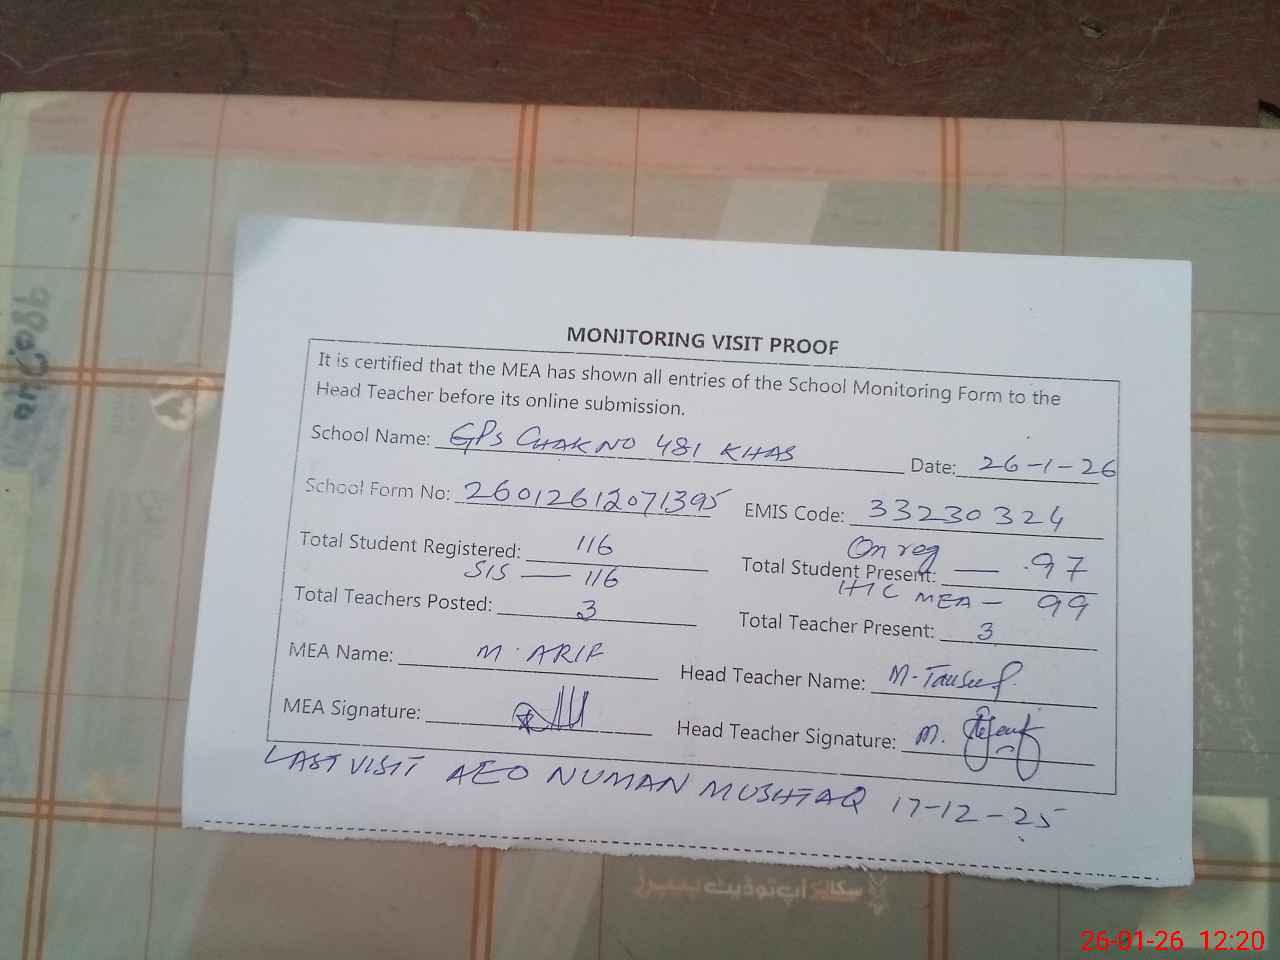 MONITORING VISIT PROOF
It is certified that the MEA has shown all entries of the School Monitoring Form to the
Head Teacher before its online submission.
School Name: GPS CHAK NO 481 KHAS Date: 26-1-26
School Form No: 26012612071395 EMIS Code: 33230324
Total Student Registered: 116 Total Student Present: On reg — 97
SIS — 116 H/C MEA - 99
Total Teachers Posted: 3 Total Teacher Present: 3
MEA Name: M. ARIF Head Teacher Name: M. Tauseef
MEA Signature: Head Teacher Signature: M.
LAST VISIT AEO NUMAN MUSHTAQ 17-12-25
26-01-26 12:20